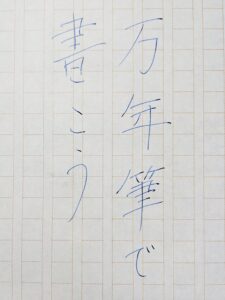 万年筆で
書こう